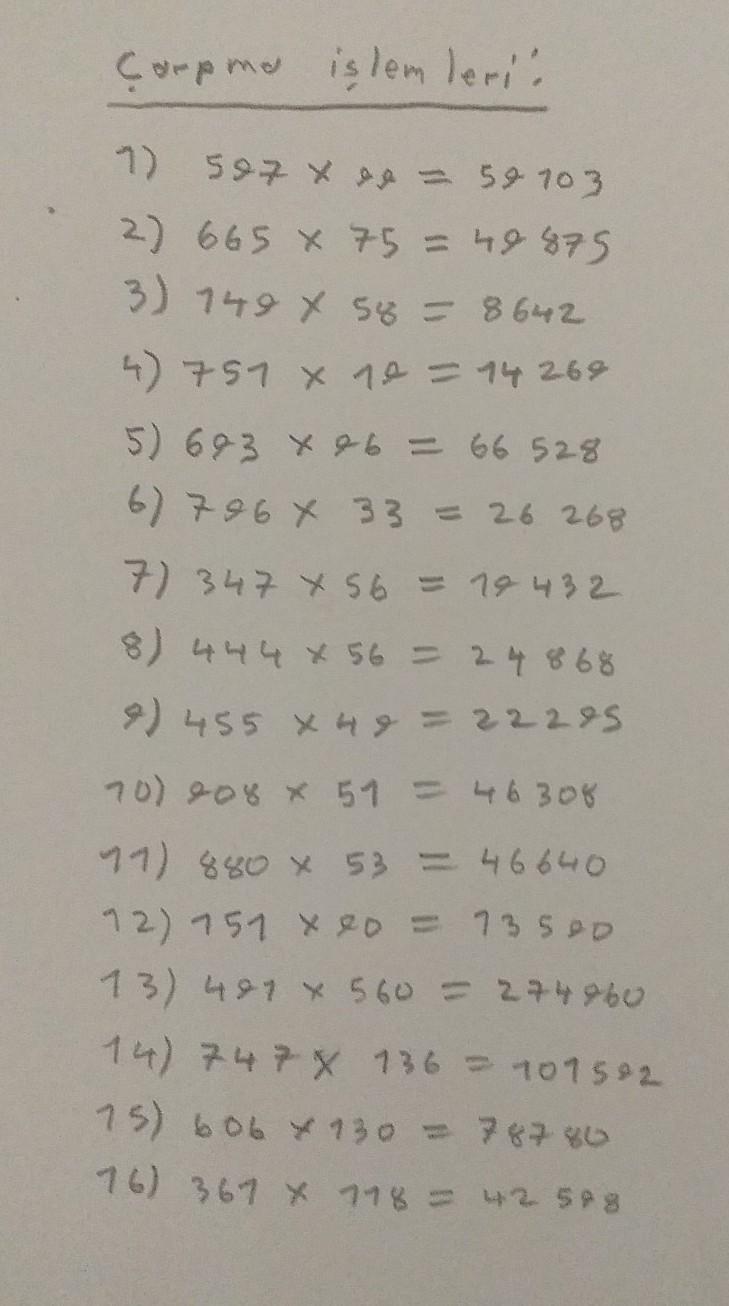 Çarpma işlemleri:
1) 597 x 99 = 59 103
2) 665 x 75 = 49 875
3) 149 x 58 = 8642
4) 751 x 19 = 14 269
5) 693 x 96 = 66 528
6) 796 x 33 = 26 268
7) 347 x 56 = 19 432
8) 444 x 56 = 24 868
9) 455 x 49 = 22295
10) 908 x 51 = 46 308
11) 880 x 53 = 46640
12) 151 x 90 = 13590
13) 491 x 560 = 274960
14) 747 x 136 = 101592
15) 606 x 130 = 78780
16) 361 x 118 = 42 598